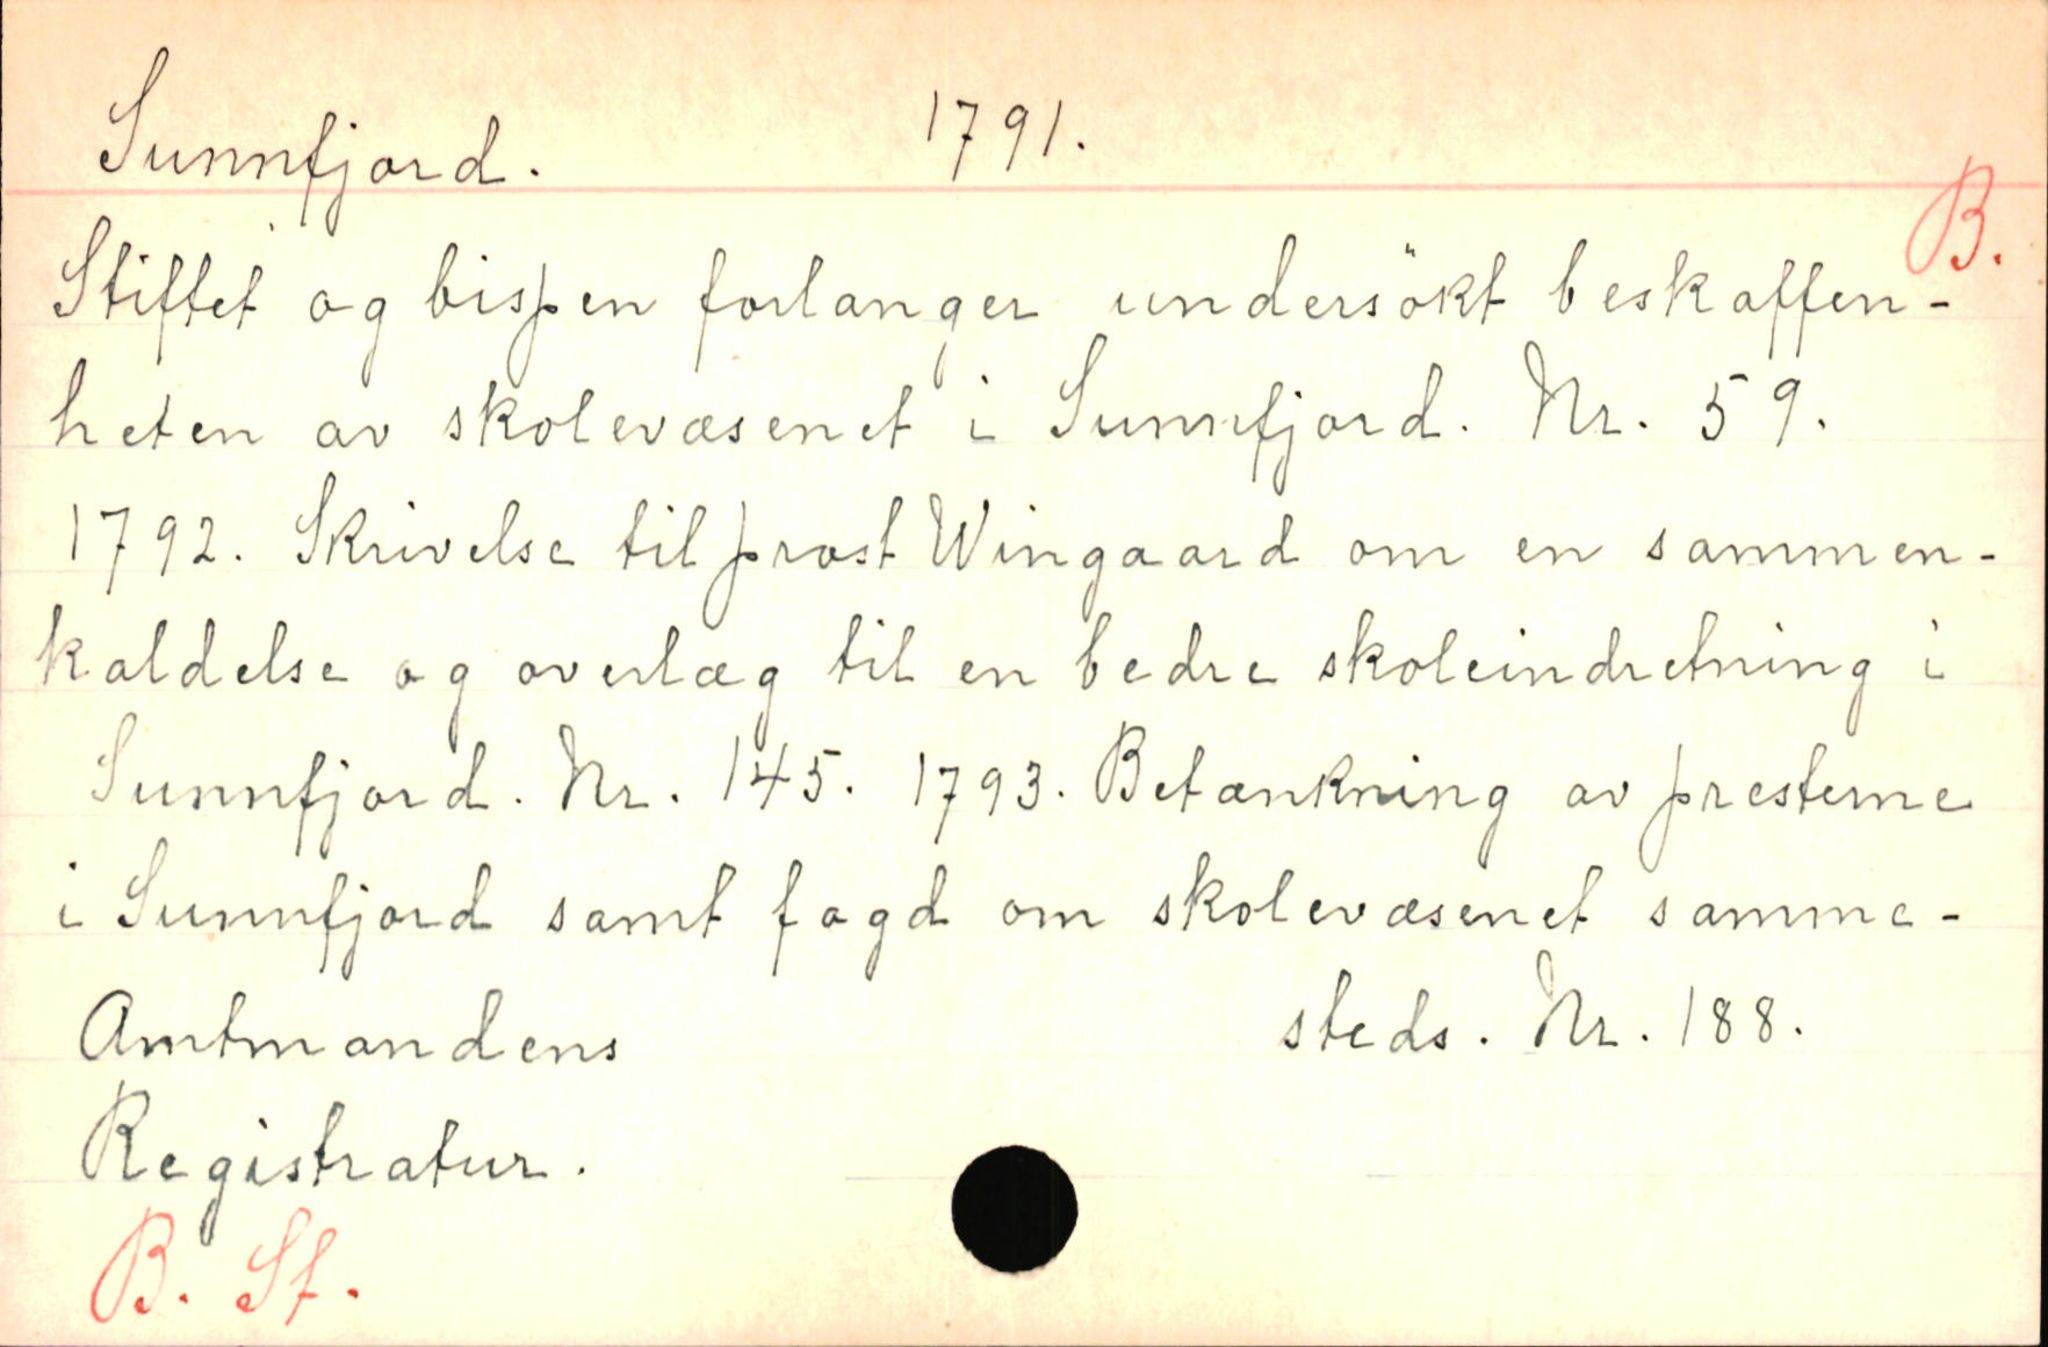 Sunnfjord. 1791.
B.
Stiftet og bispen forlanger undersökt beskaffen-
heten av skolevæsenet i Sunnfjord. Nr. 59.
1792. Skrivelse til prost Wingaard om en sammen-
kaldelse og overlæg til en bedre skoleindretning i
Sunnfjord. Nr. 145. 1793. Betænkning av presterne
i Sunnfjord samt fogd om skolevæsenet samme-
steds. Nr. 188.
Amtmandens
Registratur.
B. St.